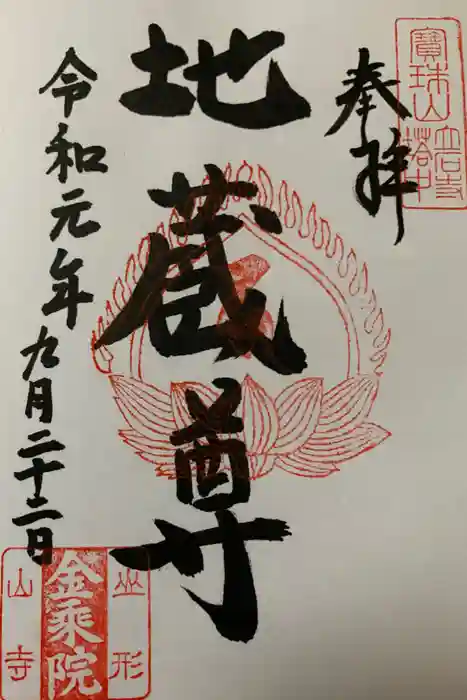 寶珠山
立石寺
塔中
奉拝
地蔵尊
令和元年九月二十二日
山形
金乘院
山寺